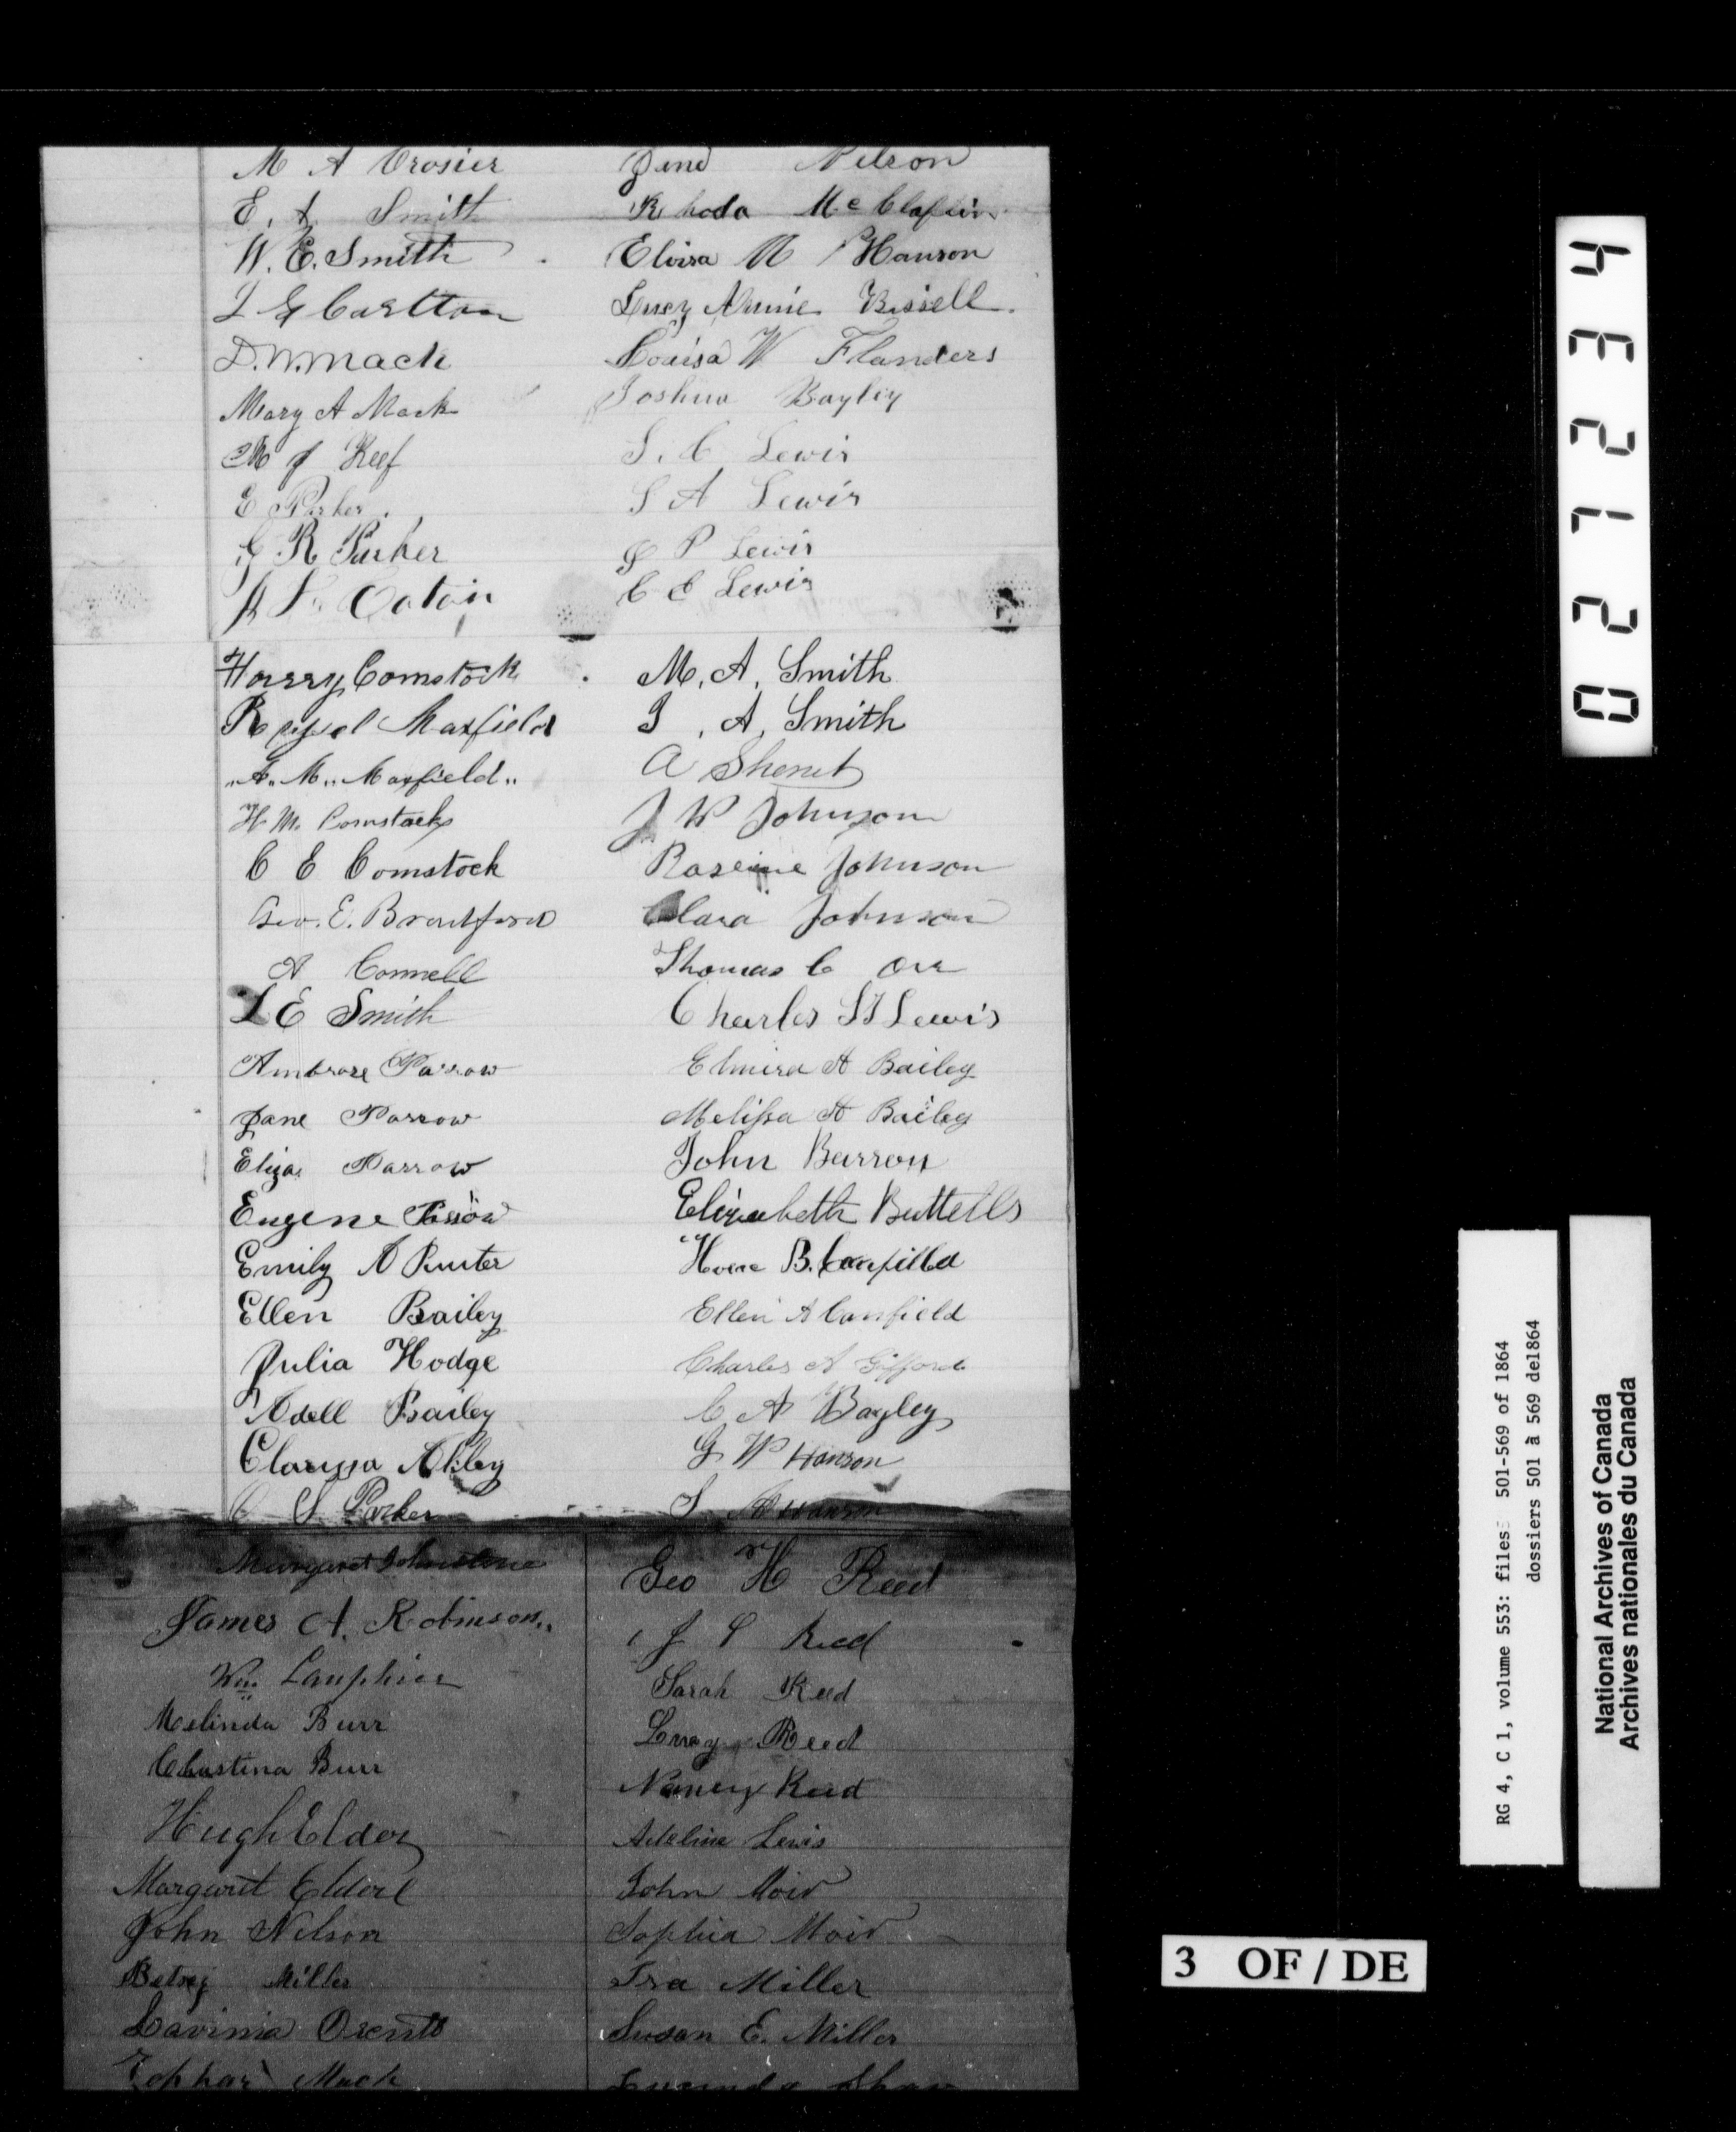 M A Crosier
E. A. Smith
W. E. Smith
L G Carlton
D. W. Mack
Mary A Mack
M J Keef
E Parker
G R Parker
Eaton
Harry Comstock
Maxfield
A. M. Maxfield
H M. Comstock
C E Comstock
Geo. E. Brantford
A Connell
L E Smith
Ambrose Parrow
Jane Parrow
Eliza Parrow
Eugene
Emily A
Ellen Bailey
Julia Hodge
Adell Bailey
Clarissa
C S Parker
Jane Nelson
Rhoda Mc Claflin
Eloisa M Hanson
Lucy Annie Bissell.
Louisa W Flanders
Joshua Bayley
S. C Lewis
S A Lewis
J P Lewis
C C Lewis
M. A. Smith
J. A. Smith
A
J W Johnson
Johnson
Clara Johnson
Thomas C Orr
Charles Lewis
Elmira A Bailey
Melissa A Bailey
John Barron
Elizabeth Buttells
B. Canfield
Ellen A Canfield
Charles A Gifford
C A Bayley
G W Hanson
S Hanson
Margaret Johnstone
James A. Robinson
Wm. Lanphier
Melinda Burr
Christina Burr
Hugh Elder
Margaret Elder
John Nelson
Betsey Miller
Lavinia
Zophar Mack
Geo H Reed
J S Reed
Sarah Reed
Lucy Reed
Nancy Reed
Adeline Lewis
John Moir
Sophia Moir
Ira Miller
Susan E. Miller
Lucinda Shaw
0271234
RG 4, C 1, volume 553: files 501-569 of 1864
dossiers 501 à 569 de1864
National Archives of Canada
Archives nationales du Canada
3 OF / DE